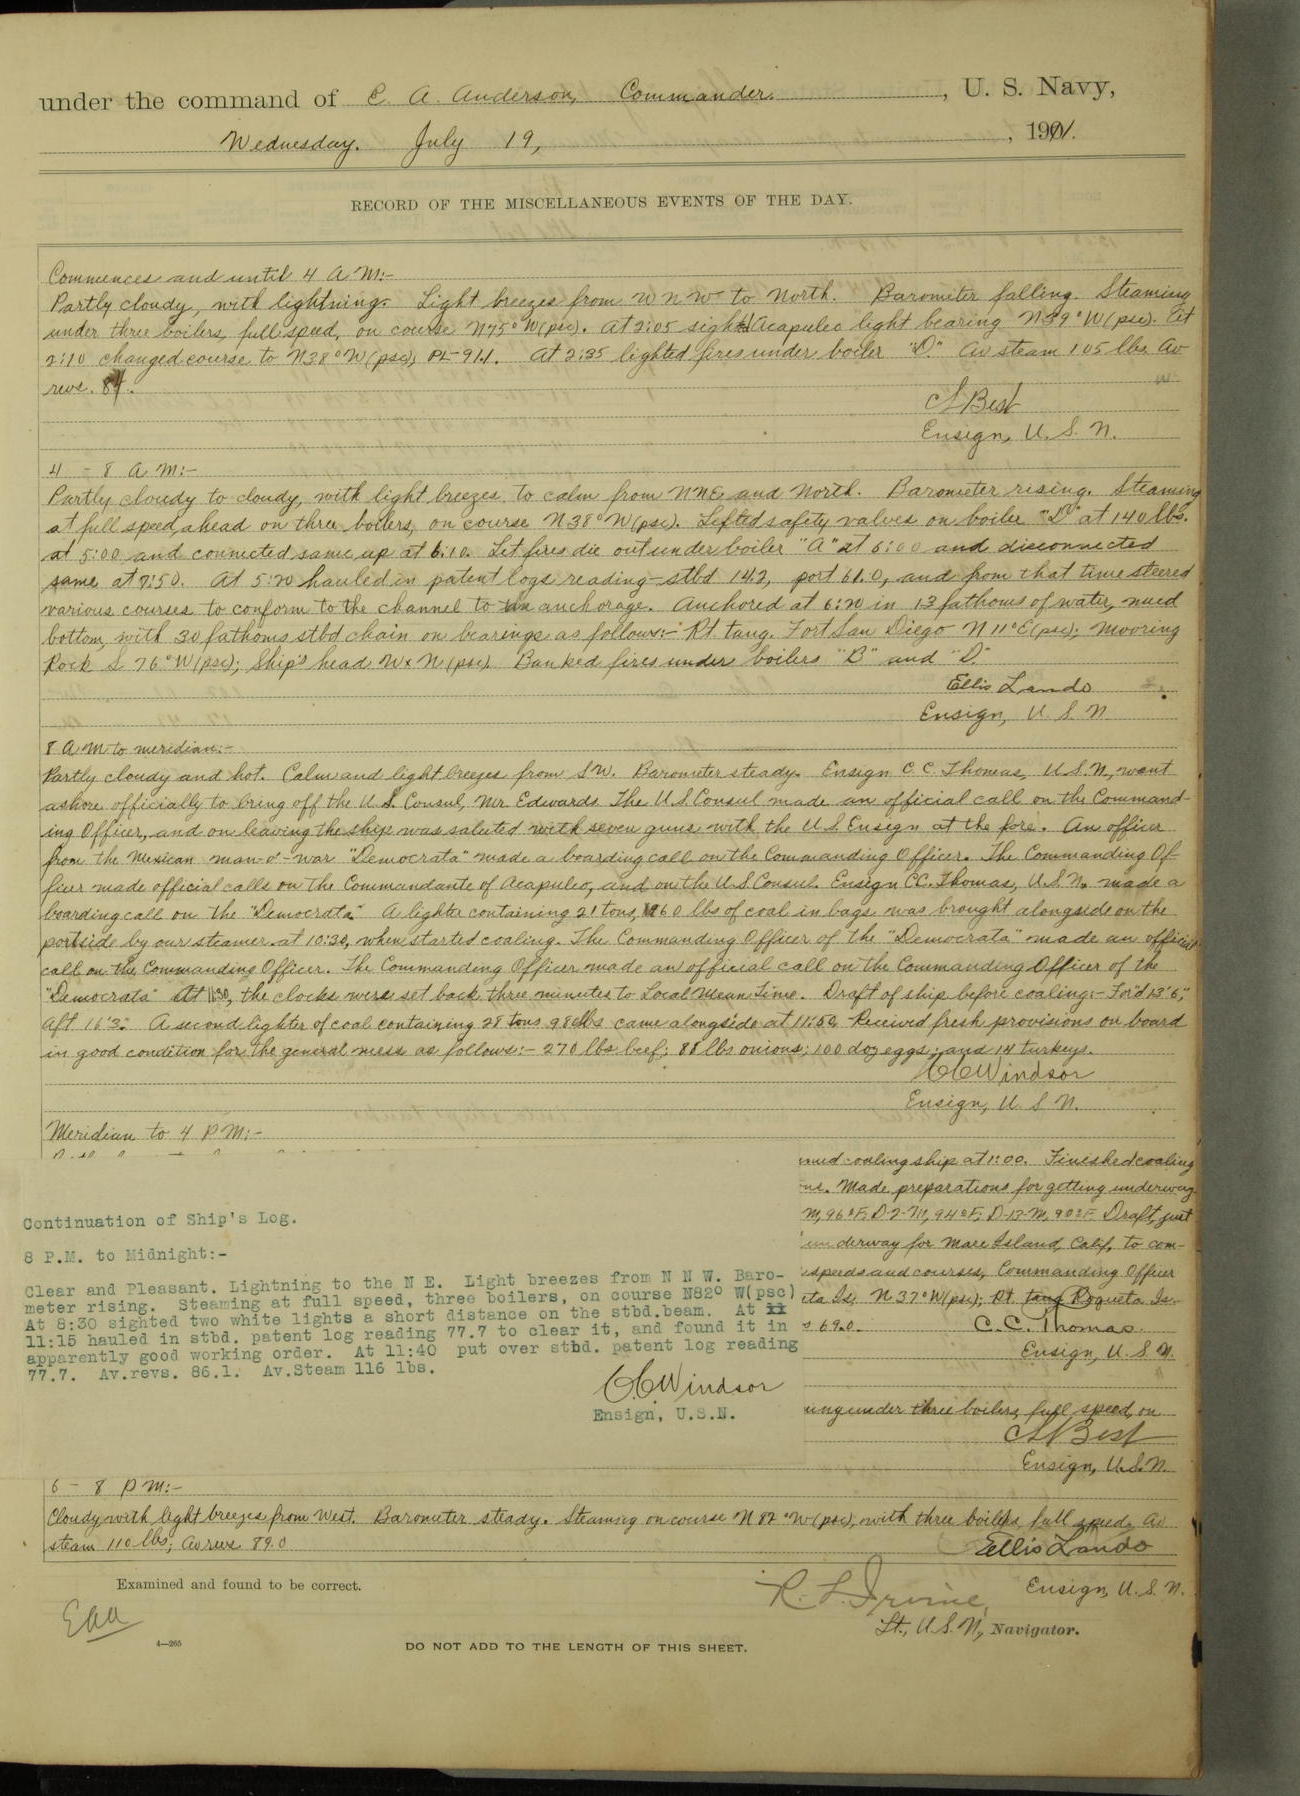 under the command of E. A. Anderson, Commander, U. S. Navy,
Wednesday. July 19, , 1911.
RECORD OF THE MISCELLANEOUS EVENTS OF THE DAY.
Commences and until 4 A M:-
Partly cloudy, with lightning. Light breezes from W N W to North. Barometer falling. Steaming
under three boilers, full speed, on course N75°W(psc). At 2:05 sighted Acapulco light bearing N39°W(psc). At
2:10 changed course to N38°W(psc), PL-91.1. At 2:35 lighted fires under boiler "D." Av steam 105 lbs. Av
revs. 84.
C S Best
Ensign, U. S. N.
4 - 8 A M:-
Partly cloudy to cloudy, with light breezes to calm from NNE and North. Barometer rising. Steaming
at full speed, ahead on three boilers, on course N38°W(psc). Lifted safety valves on boiler "D" at 140 lbs.
at 5:00 and connected same up at 6:10. Let fires die out under boiler "A" at 6:00 and disconnected
same at 7:50. At 5:20 hauled in patent logs reading - stbd 14.2, port 61.0, and from that time steered
various courses to conform to the channel to anchorage. Anchored at 6:20 in 13 fathoms of water, mud
bottom, with 30 fathoms stbd chain on bearings as follows:- Rt. tang. Fort San Diego N11°E(psc); Mooring
Rock S 76°W(psc); Ship's head WxN(psc) Banked fires under boilers "B" and "D."
Ellis Lando
Ensign, U S N
8 A M to meridian:-
Partly cloudy and hot. Calm and light breezes from SW. Barometer steady. Ensign C. C. Thomas, U.S.N, went
ashore officially to bring off the U.S. Consul, Mr. Edwards. The U.S Consul made an official call on the Command-
ing Officer, and on leaving the ship was saluted with seven guns with the U.S. Ensign at the fore. An officer
from the Mexican man-o'-war "Democrata" made a boarding call on the Commanding Officer. The Commanding Of-
ficer made official calls on the Commandante of Acapulco, and on the U.S Consul. Ensign C.C. Thomas, U.S.N. made a
boarding call on the "Democrata." A lighter containing 21 tons, 1260 lbs of coal in bags was brought alongside on the
portside by our steamer at 10:30, when started coaling. The Commanding Officer of the "Democrata" made an official
call on the Commanding Officer. The Commanding Officer made an official call on the Commanding Officer of the
"Democrata" At 11:30, the clocks were set back three minutes to Local Mean Time. Draft of ship before coaling:- For'd 13'6";
Aft 16'3". A second lighter of coal containing 28 tons 980 lbs came alongside at 11:50. Received fresh provisions on board
in good condition for the general mess as follows:- 270 lbs beef; 88 lbs onions; 100 doz eggs; and 14 turkeys.
C C Windsor
Ensign, U. S N.
Meridian to 4 P M:-
coaling ship at 1:00. Finished coaling
Made preparations for getting underway
M, 96°F; D-2-M, 94°F; D-13-M, 90°F. Draft, just
underway for Mare Island, Calif, to com-
speeds and courses, Commanding Officer
Is; N 37°W(psc); Rt. tang Roqueta Is.
69.0.
C. C. Thomas
Ensign, U. S N.
under three boilers, full speed, on
C S Best
Ensign, U.S.N.
Continuation of Ship's Log.
8 P.M. to Midnight:-
Clear and Pleasant. Lightning to the N E. Light breezes from N N W. Baro-
meter rising. Steaming at full speed, three boilers, on course N82° W(psc)
At 8:30 sighted two white lights a short distance on the stbd.beam. At
11:15 hauled in stbd. patent log reading 77.7 to clear it, and found it in
apparently good working order. At 11:40 put over stbd. patent log reading
77.7. Av.revs. 86.1. Av.Steam 116 lbs.
C C Windsor
Ensign, U.S.N.
6 - 8 P M:-
Cloudy, with light breezes from West. Barometer steady. Steaming on course N 82°W(psc), with three boilers, full speed. Av
steam 110 lbs; Av revs 89.0
Ellis Lando
Ensign, U. S. N.
Examined and found to be correct.
EAA
R. L. Irvine,
Lt., U.S.N., Navigator.
4—265
DO NOT ADD TO THE LENGTH OF THIS SHEET.